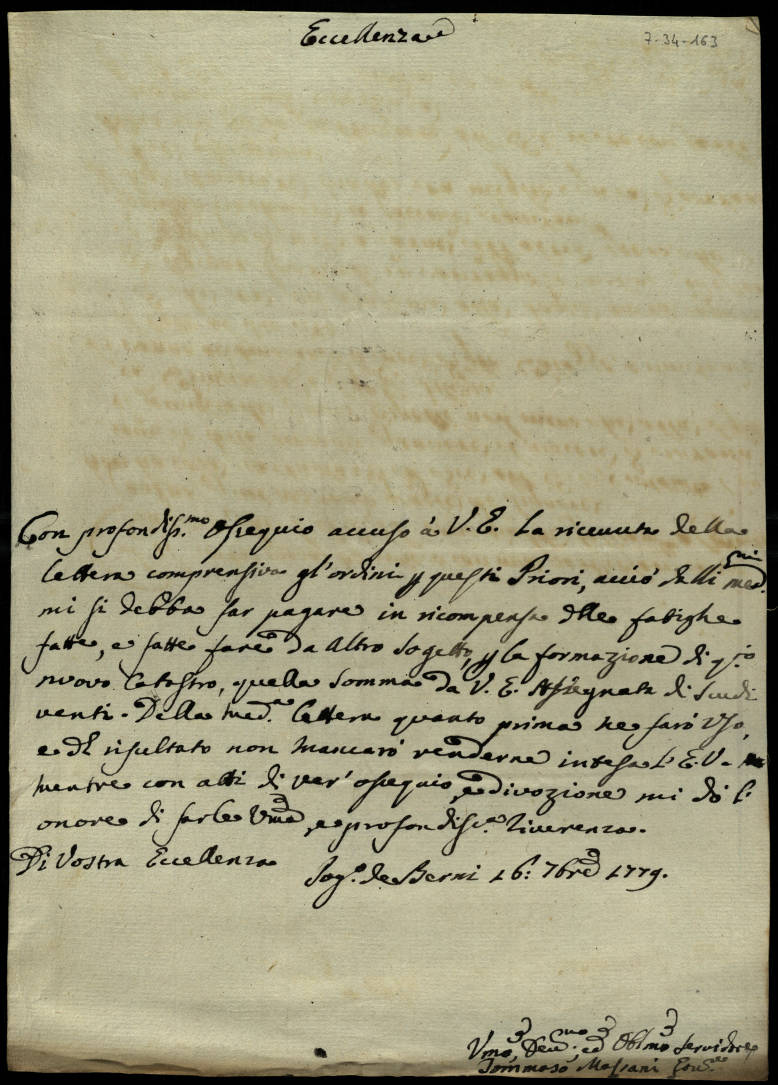 Eccellenza
7-34-163
Con profondiss.mo Ossequio accuso à V. E. la ricevuta della
lettera comprensiva gl'ordini p questi Priori, acciò dalli med.mi
mi si debba far pagare in ricompensa delle fatighe
fatte, e fatte fare da altro Sogetto, p la formazione di q.to
nuovo Catastro, quella Somma da V. E. Assegnata di Scudi
venti. Della med.a lettera quanto prima ne farò uso,
e del risultato non mancarò renderne intesa l'E. V.
mentre con atti di ver' ossequio, e divozione mi dò l'
onore di farle Um.a, e profondiss.a riverenza.
Di Vostra Eccellenza
Sog.o de Berni 16: 7bre 1779.
Umo, Dev.mo, ed Oblmo Servidore
Tommaso Massani